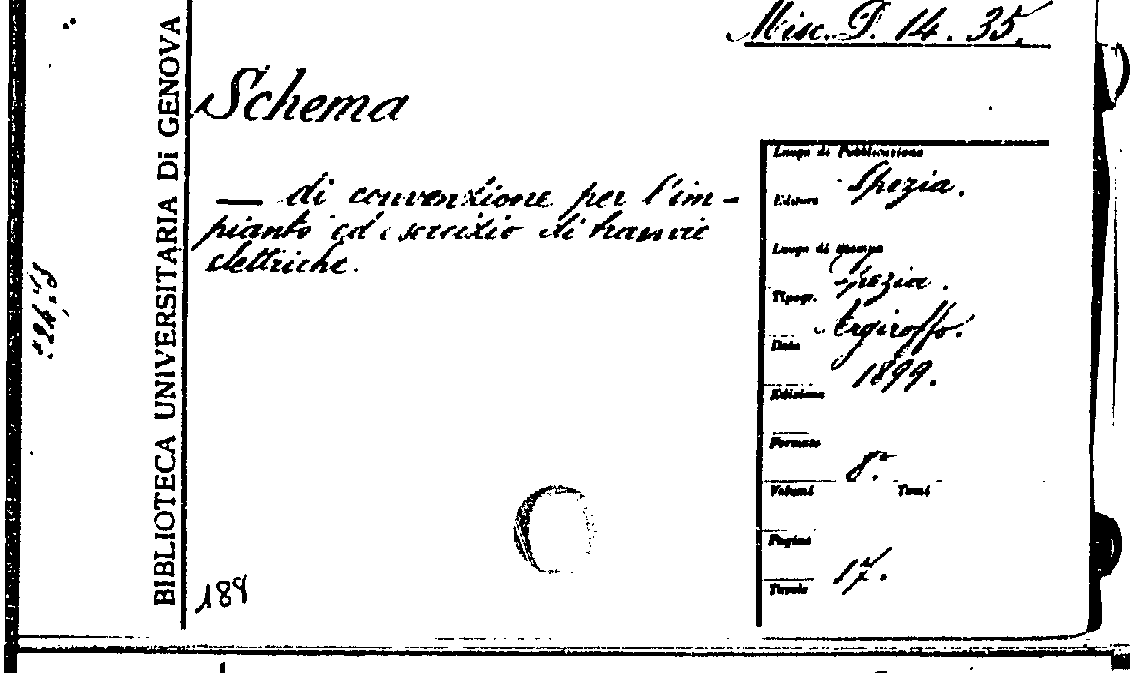 Misc. D. 14. 35.
BIBLIOTECA UNIVERSITARIA DI GENOVA
Schema
— di convenzione per l'im-
pianto ed esercizio di tramvie
elettriche.
Luogo di Pubblicazione
Spezia.
Editore
Luogo di stampa
Spezia.
Tipogr.
Argiroffo.
Data
1899.
Edizione
Formato
8º.
Volumi Tomi
Pagine
17.
Tavole
188